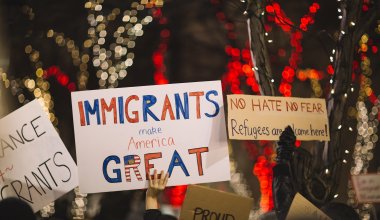 IMMIGRANTS
make
America
GREAT
NO HATE NO FEAR
Refugees are welcome here!
ANCE
GRANTS
PROUD